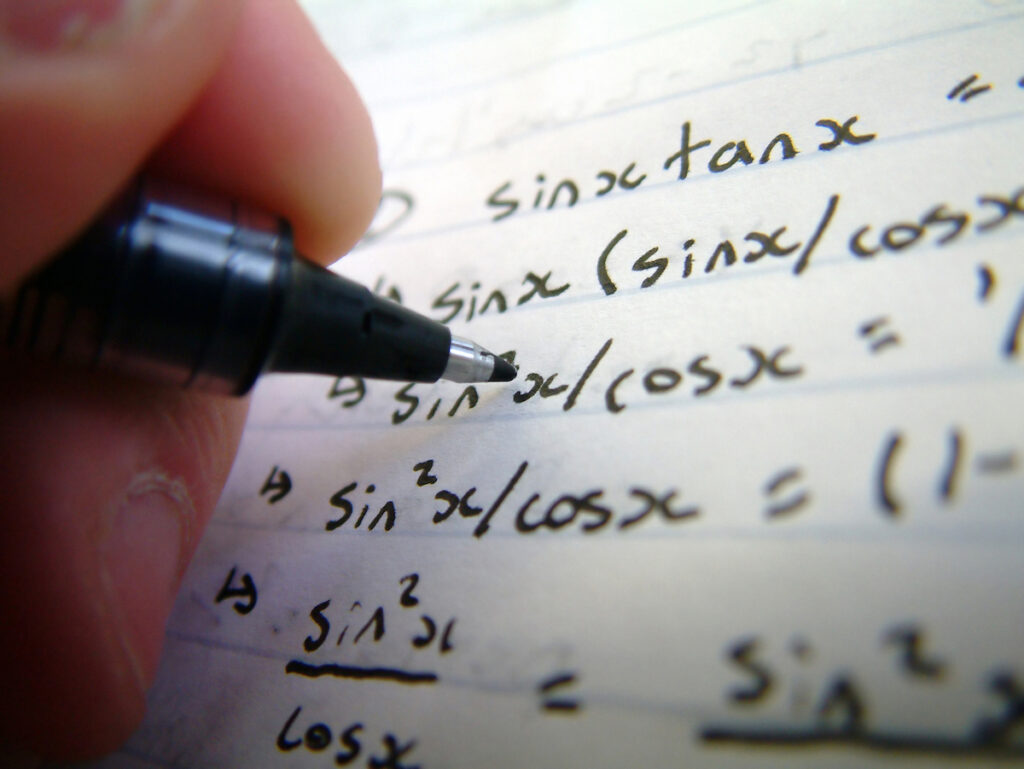 sinx tanx =
⇒ sinx (sinx/cosx
⇒ sin²x/cosx = 1/
⇒ sin²x/cosx = (1-
⇒ sin²x/cosx = sin²x